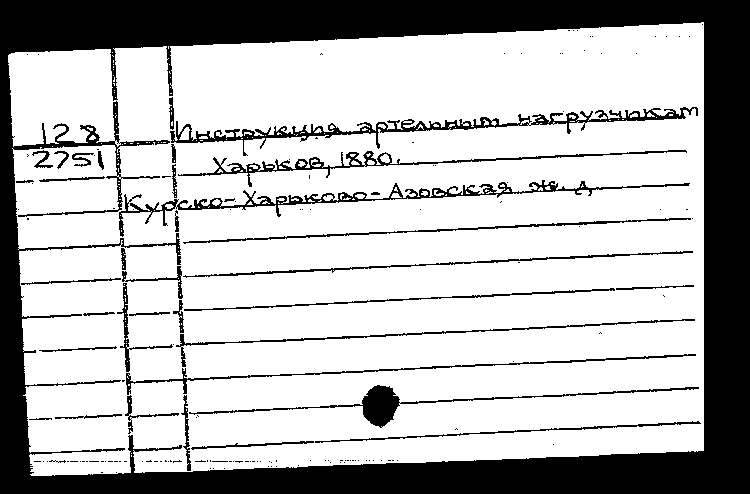 128
2751
Инструкция артельным нагрузчикам
Харьков, 1880.
Курско-Харьково-Азовская ж. д.